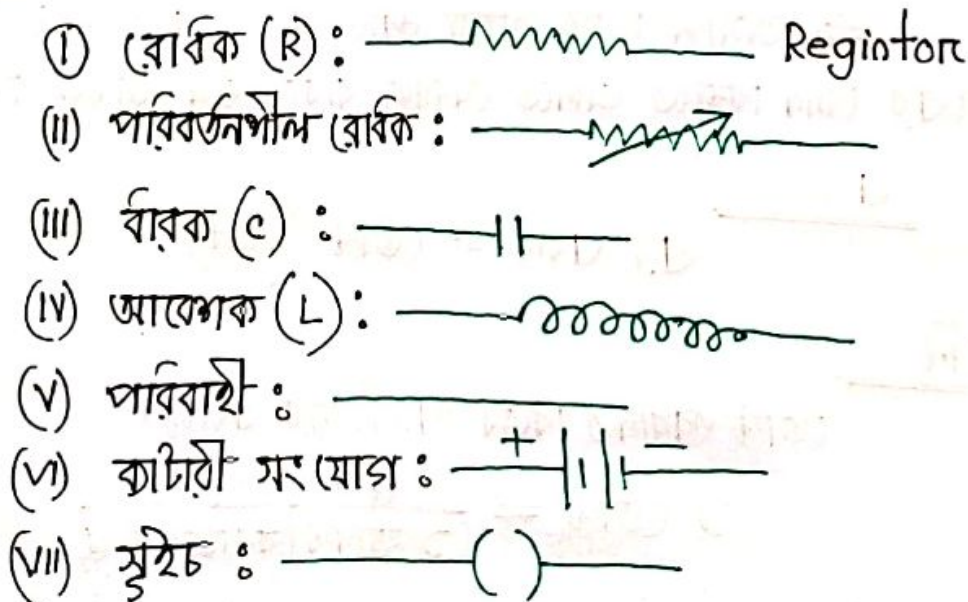 ① রোধক (R) : Regintor
(II) পরিবর্তনশীল রোধক :
(III) ধারক (C) :
(IV) আবেশক (L) :
(V) পরিবাহী :
(VI) ব্যাটারী সংযোগ : + −
(VII) সুইচ :